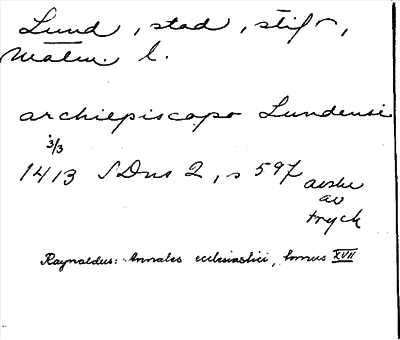 Lund, stad, stift,
Malm. l.
archiepiscopo Lundensi
3/3
1413 SDns 2, s 597 avskr
av
tryck
Raynaldus: Annales ecclesiastici, tomus XVII